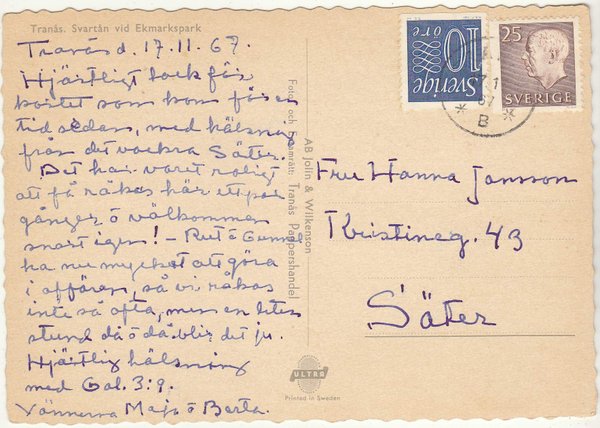 Tranås. Svartån vid Ekmarkspark
Tranås d. 17.11.67.
Hjärtligt tack för
kortet som kom för en
tid sedan, med hälsning
från det vackra Säter.
Det har varit roligt
att få råkas här ett par
gånger o välkommen
snart igen! - Rut o Gunni
ha nu mycket att göra
i affären, så vi råkas
inte så ofta, men en liten
stund då o då blir det ju.
Hjärtlig hälsning
med Gal. 3:9.
Vännerna Maja o Berta.
AB Jolin & Wilkenson
Foto och Ensamrätt: Tranås Pappershandel
10 öre
Sverige
25
SVERIGE
67
* B *
Fru Hanna Jansson
Kristineg. 43
Säter
ULTRA
Printed in Sweden